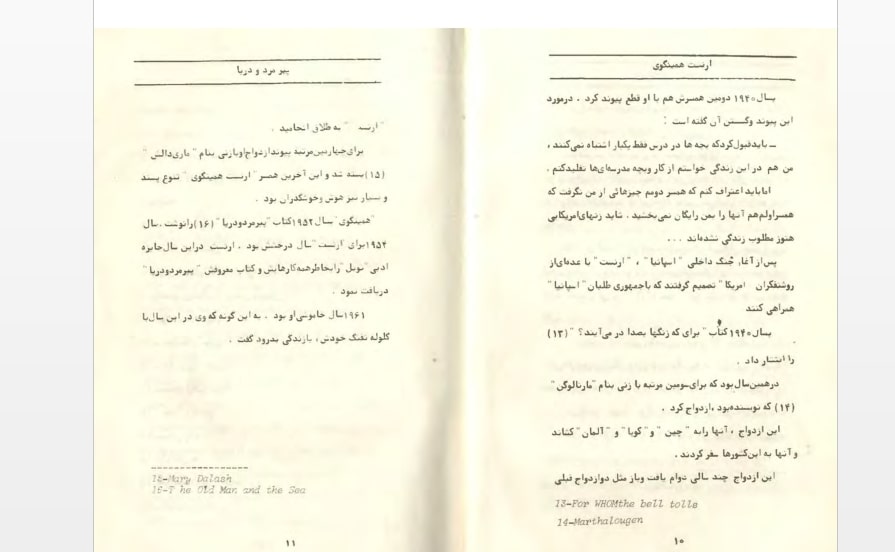 ارنست همینگوی
بسال ۱۹۴۰ دومین همسرش هم با او قطع پیوند کرد . درمورد
این پیوند وگسستن آن گفته است :
ــ بایدقبول‌کردکه بچه ها در درس فقط یکبار اشتباه نمی‌کنند ،
من هم در این زندگی خواستم از کار وبچه مدرسه‌ای‌ها تقلیدکنم .
امایاید اعتراف کنم که همسر دومم چیزهائی از من نگرفت که
همسراولم‌هم آنها را بمن رایگان نمی‌بخشید . شاید زنهای‌امریکایی
هنوز مطلوب زندگی نشده‌اند ...
پس‌از آغاز جنگ داخلی " اسپانیا " ، " ارنست " با عده‌ای‌از
روشنفکران امریکا" تصمیم گرفتند که باجمهوری طلبان "اسپانیا "
همراهی کنند
بسال ۱۹۴۰ کتاب " برای که زنگها بصدا در می‌آیند؟ " (۱۳)
را انتشار داد .
درهمین‌سال‌بود که برای‌سومین مرتبه با زنی بنام "مارتالوگن "
(۱۴) که نویسنده‌بود ،ازدواج کرد .
این ازدواج ، آنها رابه " چین " و" کوبا " و " آلمان " کشاند
و آنها به این‌کشورها سفر کردند .
این ازدواج چند سالی دوام یافت وباز مثل دوازدواج قبلی
13-For WHOMthe bell tolls
14-Marthalougen
۱۰
پیر مرد و دریا
"ارنست " به طلاق انجامید .
برای‌چهارمین‌مرتبه پیوندازدواج‌اوبازنی بنام " ماری‌دالش "
(۱۵) بسته شد و این آخرین همسر " ارنست همینگوی " تنوع پسند
و بسیار تیز هوش وخوشگذران بود .
"همینگوی" سال ۱۹۵۲ کتاب "پیرمردودریا " (۱۶) رانوشت .سال
۱۹۵۴برای "ارنست "سال درخشش بود . ارنست دراین سال‌جایزه
ادبی "نوبل "رابخاطرهمه‌کارهایش و کتاب معروفش " پیرمردودریا "
دریافت نمود .
۱۹۶۱سال خاموشی‌او بود . به این گونه که وی در این سال‌با
گلوله تفنگ خودش ، بازندگی بدرود گفت .
15-Mary Dalash
16-T he Old Man and the Sea
۱۱